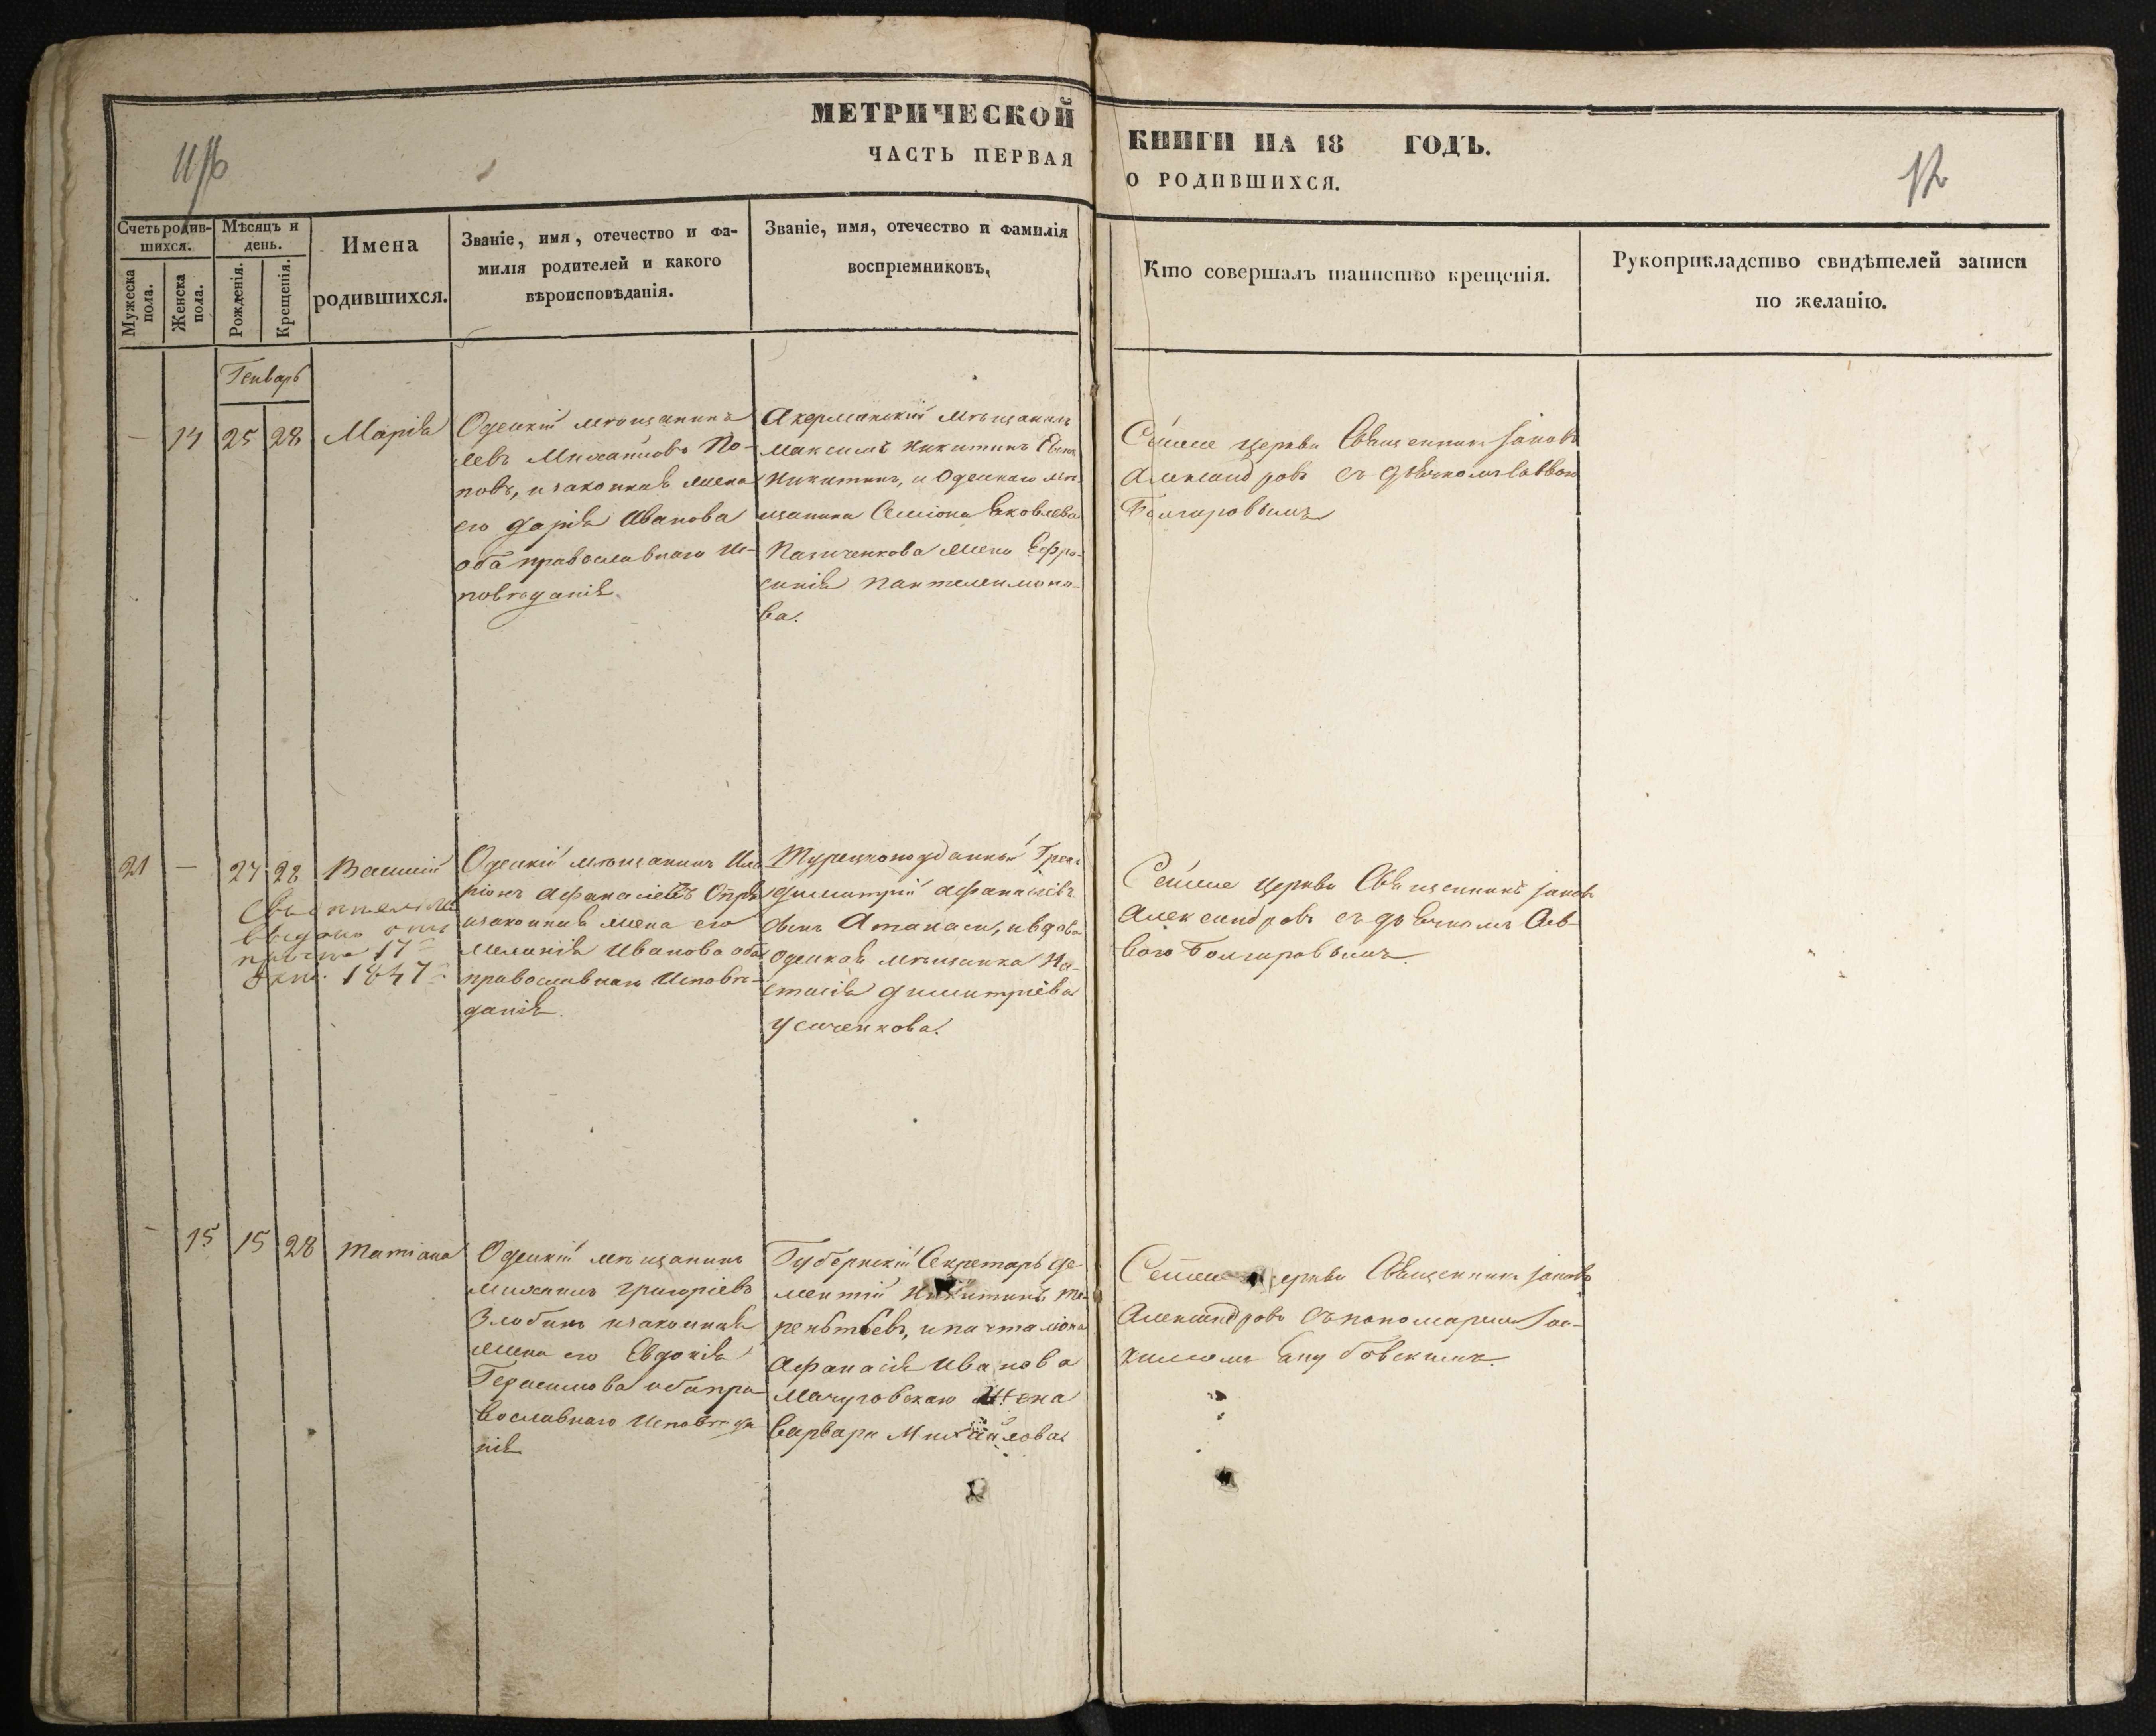 МЕТРИЧЕСКОЙ
ЧАСТЬ ПЕРВАЯ
КНИГИ НА 18 ГОДЪ.
О РОДИВШИХСЯ.
12
Счетъ родив-
шихся.
Мужеска
пола.
Женска
пола.
Мѣсяцъ и
день.
Рожденія.
Крещенія.
Имена
родившихся.
Званіе, имя, отечество и фа-
милія родителей и какого
вѣроисповѣданія.
Званіе, имя, отечество и фамилія
воспріемниковъ.
Кто совершалъ таинство крещенія.
Рукоприкладство свидѣтелей записи
по желанію.
Генварь
— 14 25 28 Марія
Одескій мѣщанинъ
Михаиловъ По-
повъ, и законная жена
его Дарія Иванова
оба православнаго Ис-
повѣданія.
Акерманскій Мѣщанинъ
Максимъ Никитинъ
Никитинъ, и Одескаго мѣ-
щанина Семіона Яковлева
жена Ефро-
синія Пантелеимоно-
ва.
Сей же церкви Священникъ Іаковъ
Александровъ съ дьячкомъ Саввою
Болгаровымъ
21 — 27 28 Василій
выдано
17
окт. 1847
Одескій мѣщанинъ Ила-
ріонъ Афанасіевъ
и законная жена его
Меланія Иванова оба
православнаго Исповѣ-
данія.
Турецкоподданный Грекъ
Димитрій Афанасіевъ
и вдова
Одеская мѣщанка На-
стасія Димитріева
Усиченкова.
Сей же Церкви Священникъ Іаковъ
Александровъ съ дьячкомъ Сав-
вою Болгаровымъ.
— 15 15 28 Татіана
Одескій мѣщанинъ
Михаилъ Григоріевъ
Злобинъ и законная
жена его Евдокія
Герасимова оба пра-
вославнаго Исповѣда
нія
Губернскій Секретарь Де-
ментій Никитинъ Те-
рентьевъ, и почталіона
Афанасія Иванова
жена
Варвара Михайлова.
Сей же церкви Священникъ Іаковъ
Александровъ съ пономаремъ Іоа-
кимомъ